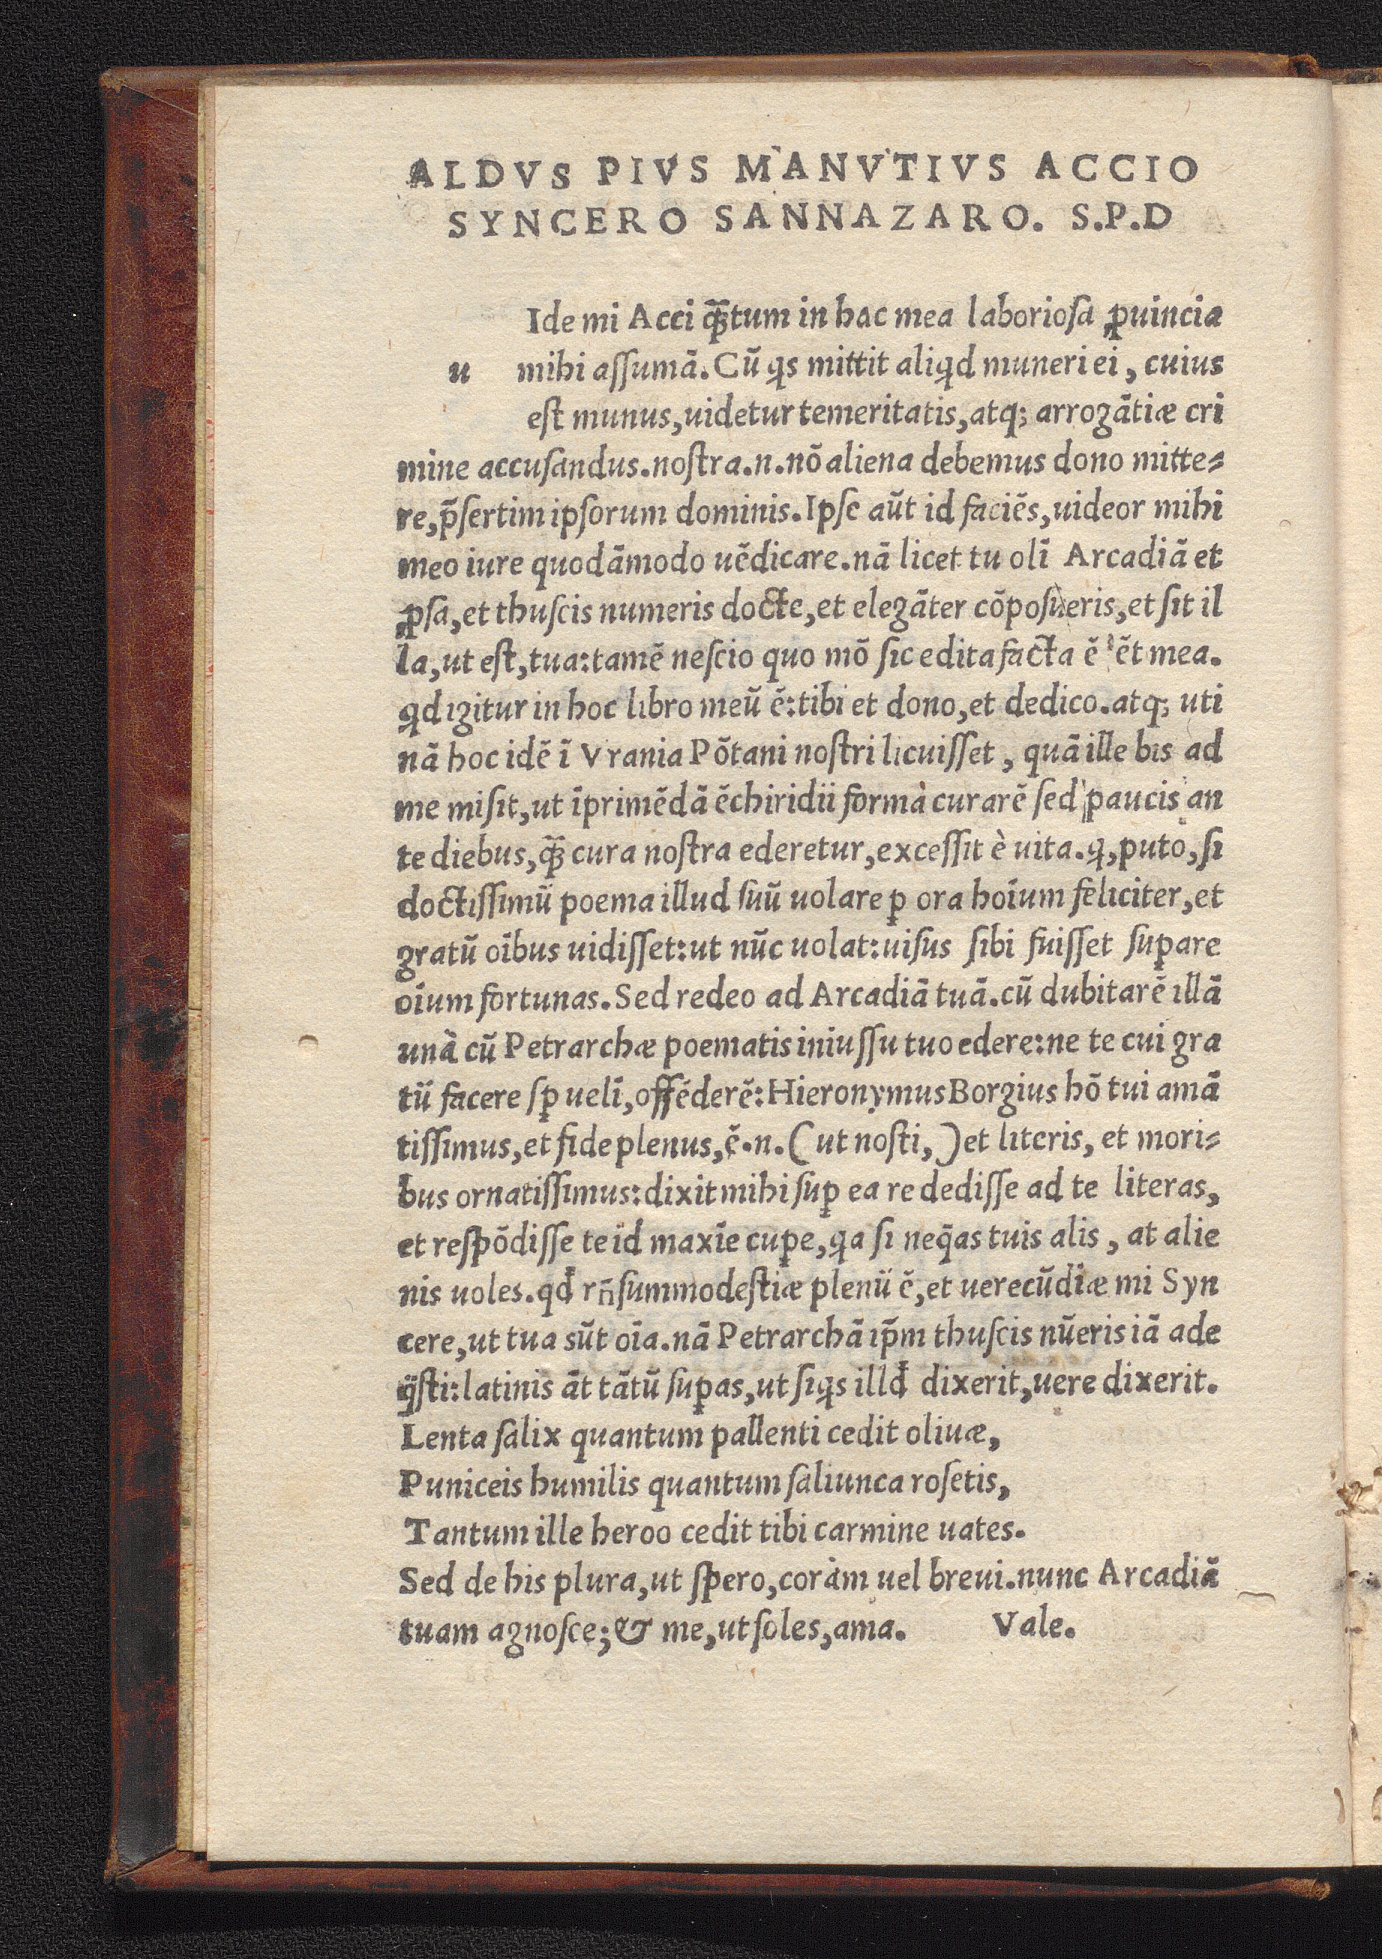 ALDVS PIVS MANVTIVS ACCIO
SYNCERO SANNAZARO. S.P.D
Ide mi Acci q̃ꝫtum in hac mea laboriosa ꝓuincia
u mihi assumā. Cū ꝗs mittit aliꝗd muneri ei, cuius
est munus, uidetur temeritatis, atqꝫ arrogātiæ cri
mine accusandus. nostra. n. nō aliena debemus dono mitte=
re, p̄sertim ipsorum dominis. Ipse aūt id faciēs, uideor mihi
meo iure quodāmodo uēdicare. nā licet tu olī Arcadiā et
ꝓsa, et thuscis numeris docte, et elegāter cōposueris, et sit il
la, ut est, tua: tamē nescio quo mō sic edita facta ē ēt mea.
ꝗd igitur in hoc libro meū ē: tibi et dono, et dedico. atqꝫ uti
nā hoc idē ī Vrania Pōtani nostri licuisset, quā ille bis ad
me misit, ut īprimēdā ēchiridii formà curarē sed paucis an
te diebus, q̃ꝫ cura nostra ederetur, excessit è uita. ꝗ, puto, si
doctissimū poema illud suū uolare ꝑ ora hoīum feliciter, et
gratū oībus uidisset: ut nūc uolat: uisus sibi fuisset suꝑare
oīum fortunas. Sed redeo ad Arcadiā tuā. cū dubitarē illā
unà cū Petrarchæ poematis iniussu tuo edere: ne te cui gra
tū facere sꝑ uelī, offēderē: Hieronymus Borgius hō tui amā
tissimus, et fide plenus, ē. n. (ut nosti,) et literis, et mori=
bus ornatissimus: dixit mihi suꝑ ea re dedisse ad te literas,
et respōdisse te id maxīe cuꝑe, ꝗa si neq̄as tuis alis, at alie
nis uoles. qđ rn̄sum modestiæ plenū ē, et uerecūdiæ mi Syn
cere, ut tua sūt oīa. nā Petrarchā ip̄m thuscis nūeris iā ade
q̄sti: latinis āt tātū suꝑas, ut siꝗs illđ dixerit, uere dixerit.
Lenta salix quantum pallenti cedit oliuæ,
Puniceis humilis quantum saliunca rosetis,
Tantum ille heroo cedit tibi carmine uates.
Sed de his plura, ut spero, coràm uel breui. nunc Arcadiā
tuam agnosce; & me, ut soles, ama. Vale.